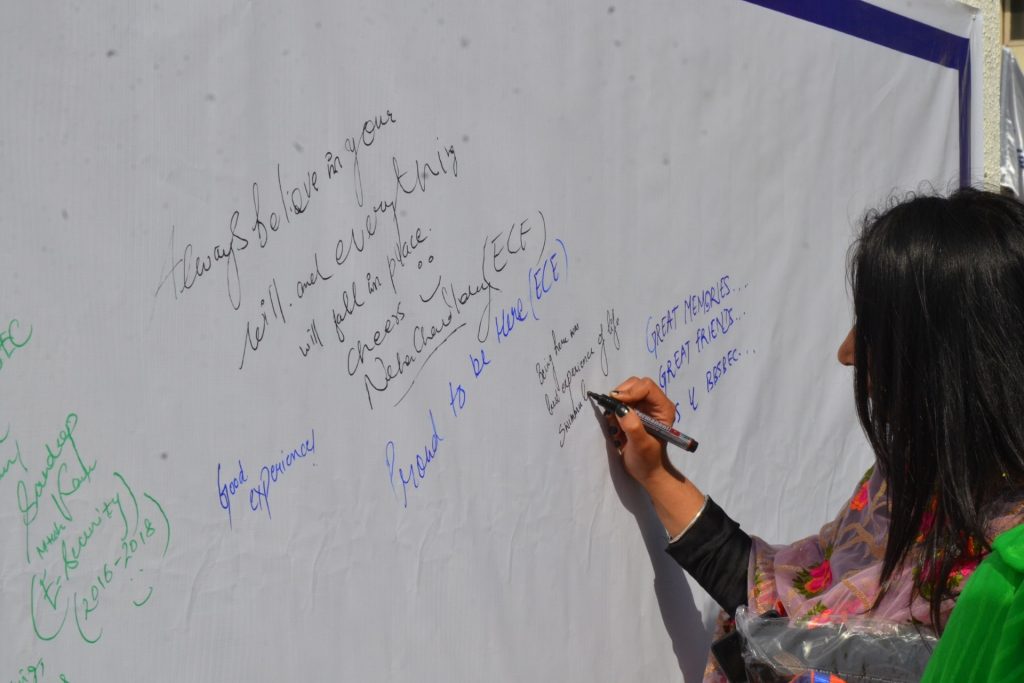 Always believe in your
will. and everything
will fall in place.
cheers
Neha Chaudhary (ECE)
Proud to be Here (ECE)
Good
experience!
Being here was
best experience of life
GREAT MEMORIES....
GREAT FRIENDS....
BBSBEC...
Sandeep
Kaur
(E-Security)
(2016-2018)